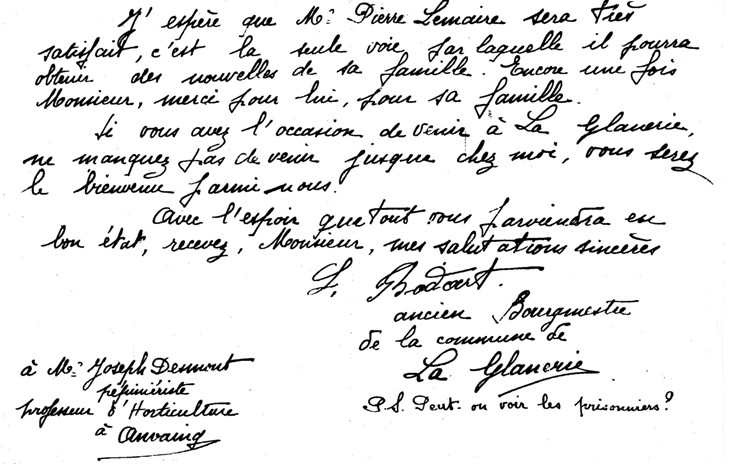 J'espère que Mr Pierre Lemaire sera très
satisfait, c'est la seule voie par laquelle il pourra
obtenir des nouvelles de sa famille. Encore une fois
Monsieur, merci pour lui, pour sa famille.
Si vous avez l'occasion de venir à La Glanerie,
ne manquez pas de venir jusque chez moi, vous serez
le bienvenu parmi nous.
Avec l'espoir que tout vous parviendra en
bon état, recevez, Monsieur, mes salutations sincères
ancien Bourgmestre
de la commune de
La Glanerie
à Mr Joseph Dennont
pépiniériste
professeur d'Horticulture
à Anvaing
P.S. Peut-on voir les prisonniers?